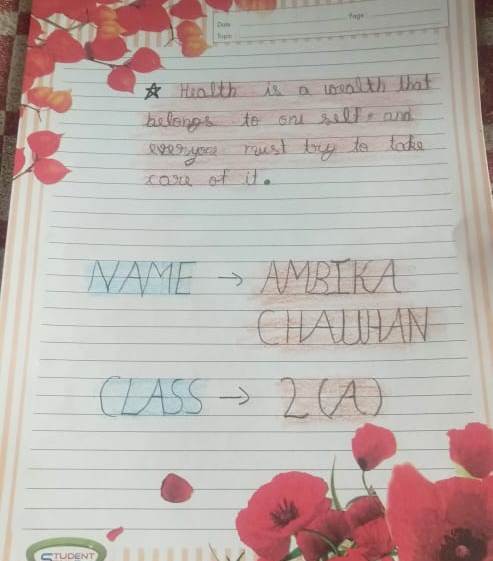 Date
Page
Topic
☆ Health is a wealth that
belongs to one self. and
everyone must try to take
care of it.
NAME → AMBIKA
CHAUHAN
CLASS → 2(A)
STUDENT